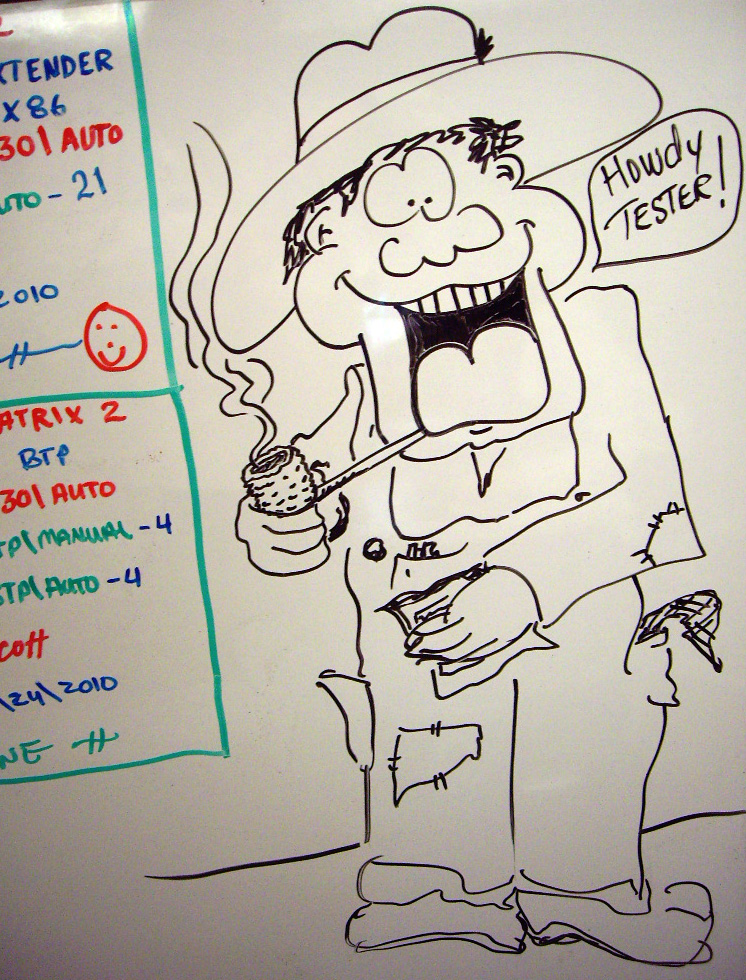 2
XTENDER
X86
30\AUTO
UTO - 21
2010
ATRIX 2
BTP
30\AUTO
TP\MANUAL - 4
BTP\AUTO - 4
COTT
\24\2010
NE
Howdy
TESTER!